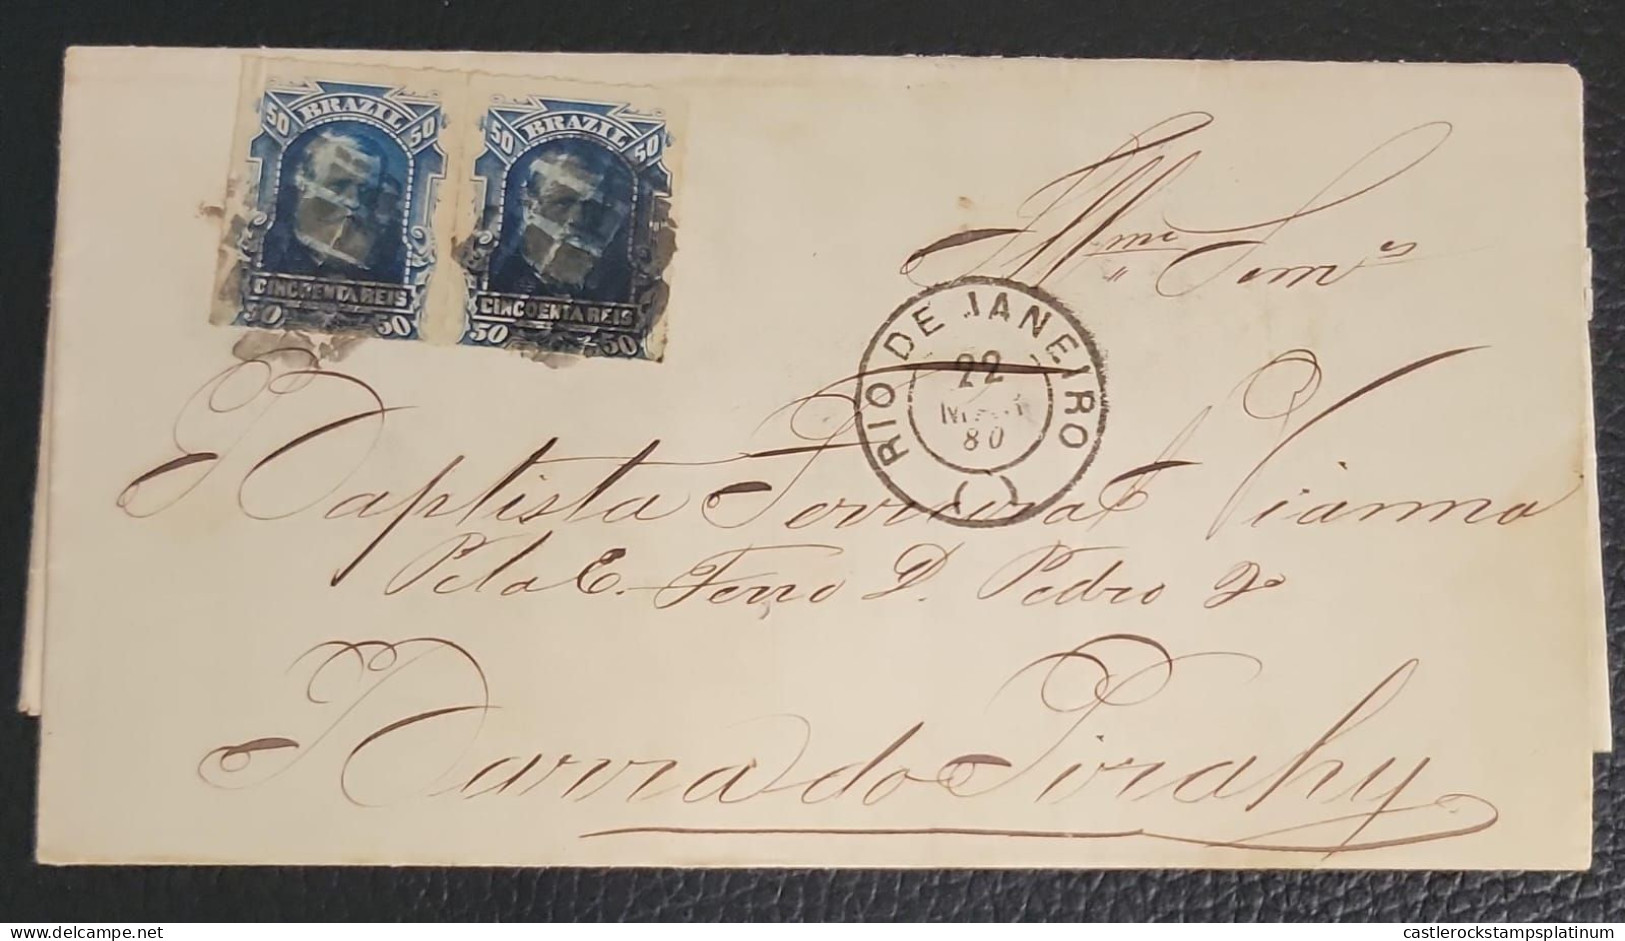 50 BRAZIL 50
CINCOENTA REIS
50 50
50 BRAZIL 50
CINCOENTA REIS
50 50
Snres
RIO DE JANEIRO
22
80
Baptista Ferreira & Vianna
Pela E. Ferro D. Pedro 2º
Barra do Pirahy
delcampe.net
castlerockstampsplatinum